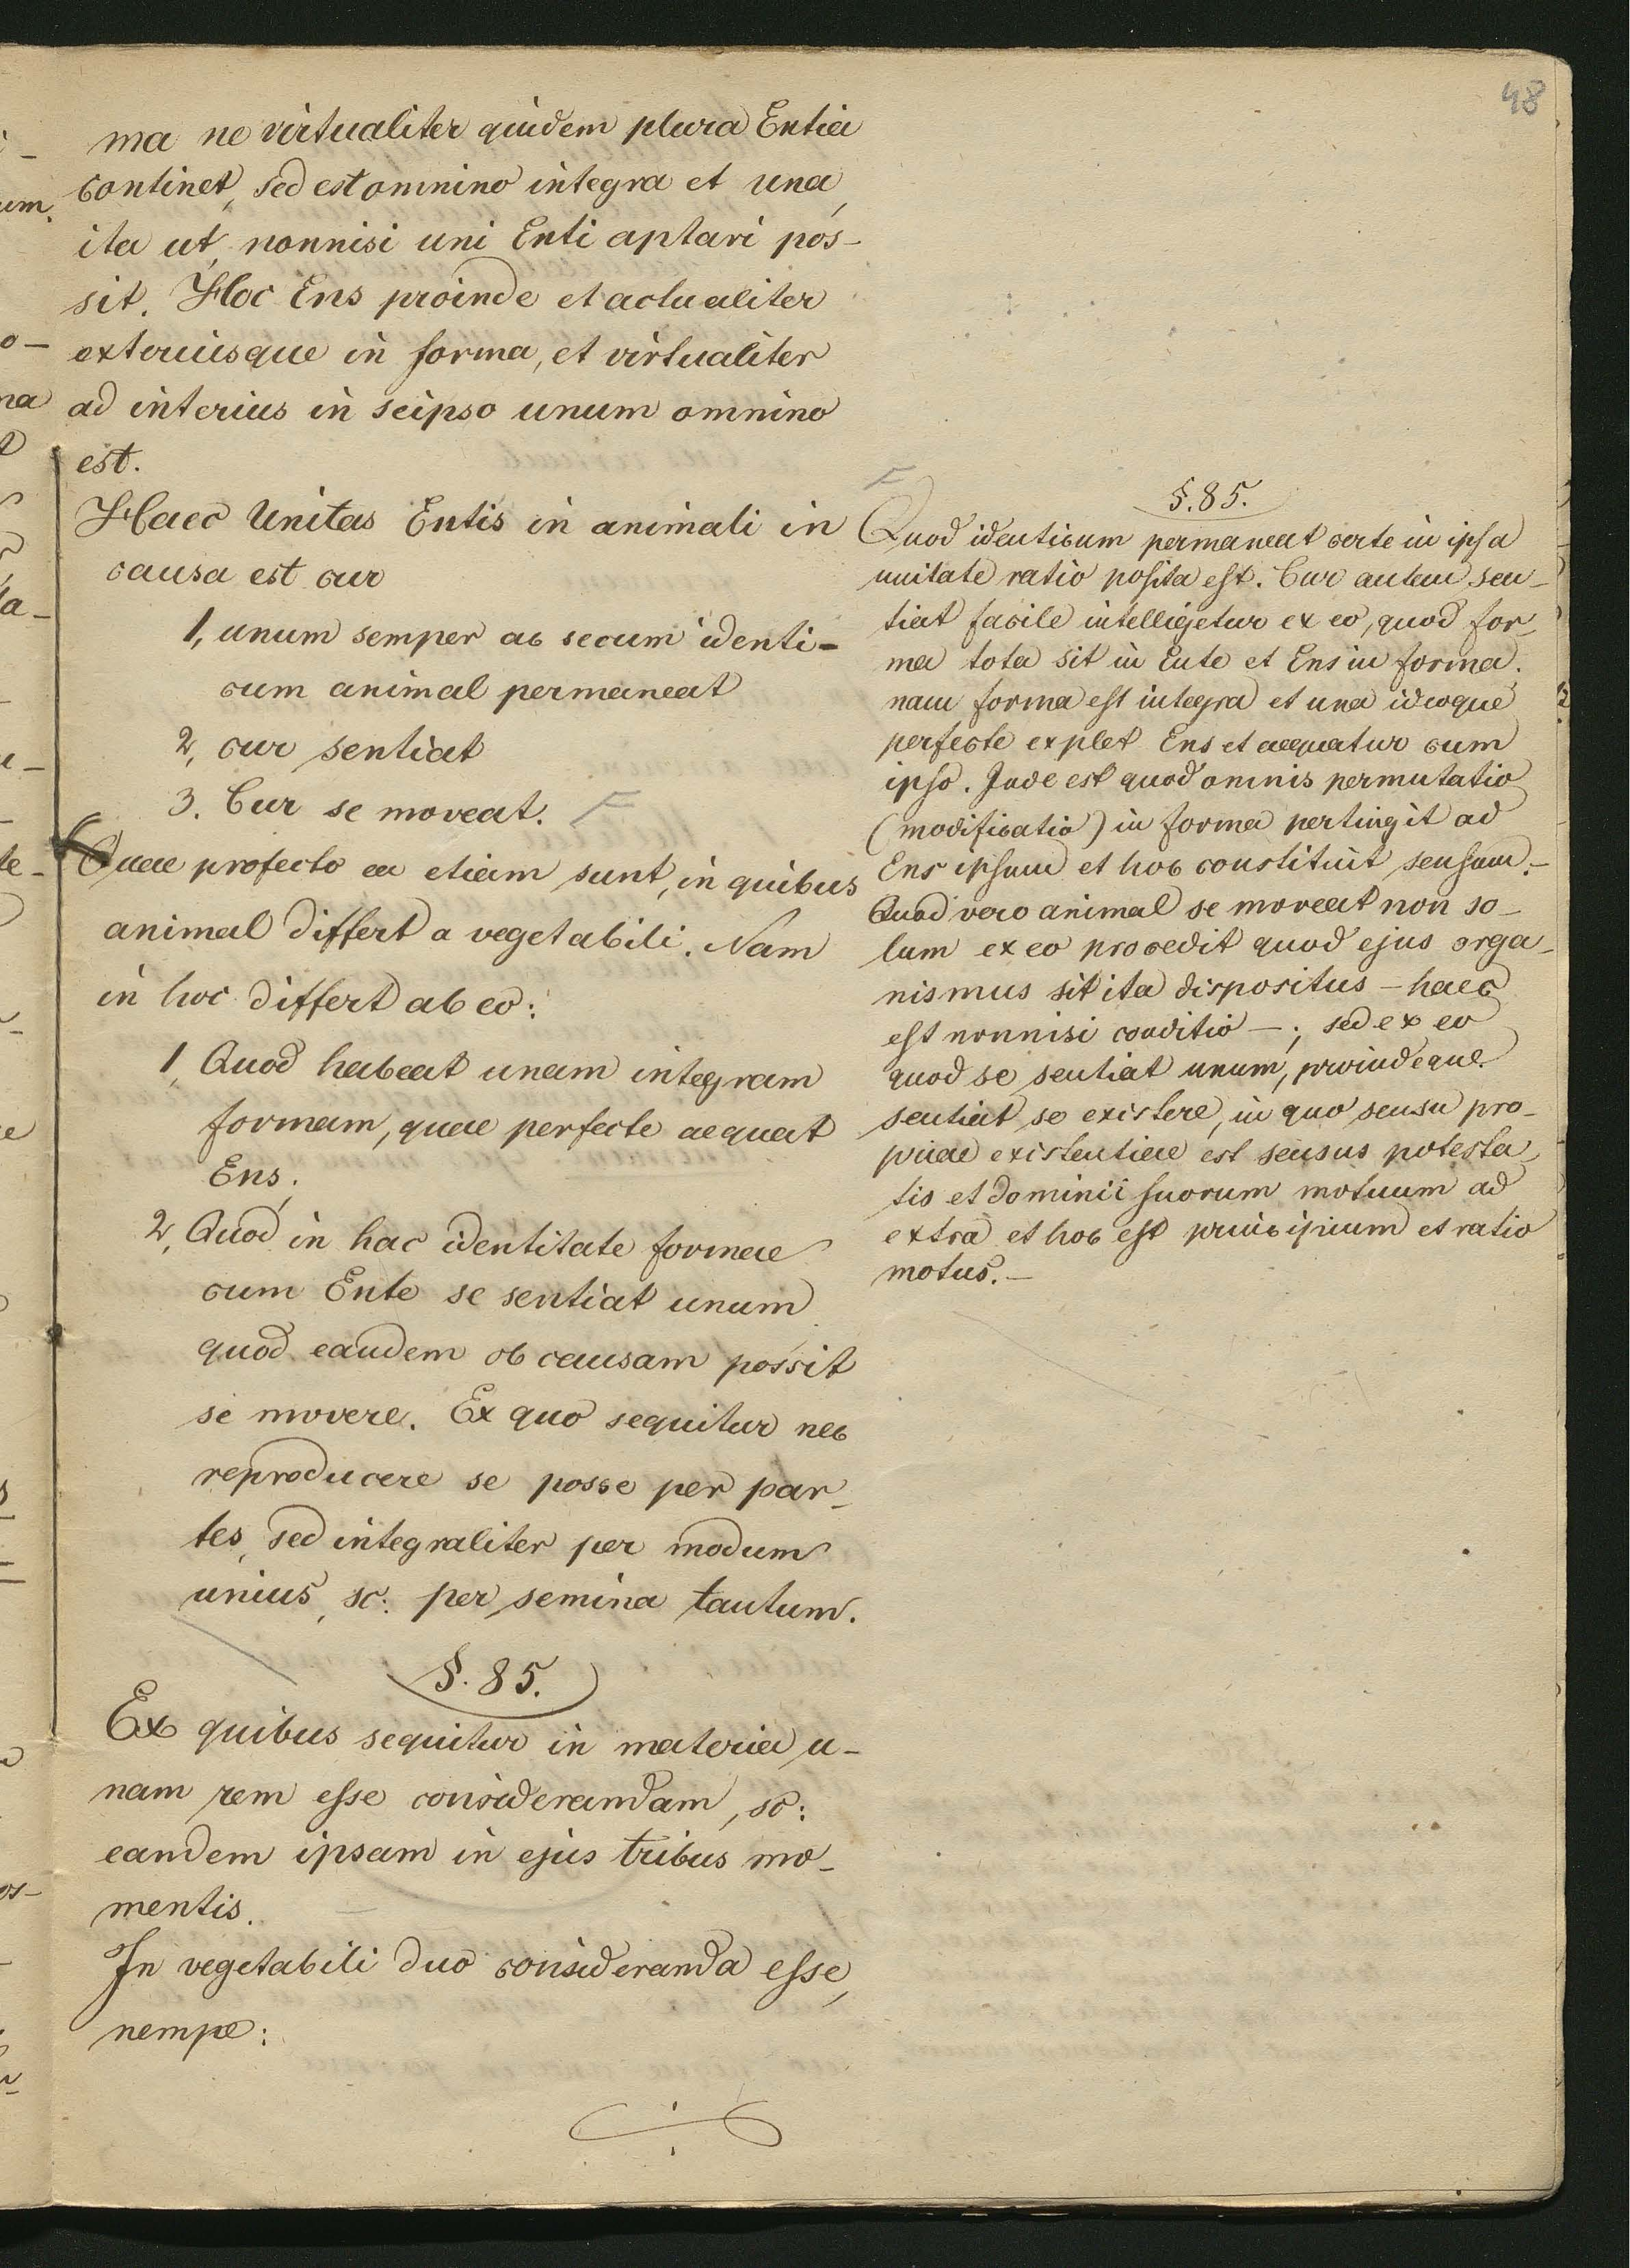 48
ma ne virtualiter quidem plura Entia
continet, sed est omnino integra et una,
ita ut nonnisi uni Enti aptari pos-
sit. Hoc Ens proinde et actualiter
exteriusque in forma, et virtualiter
ad interius in seipso unum omnino
est.
Haec Unitas Entis in animali in
causa est cur
1, unum semper ac secum identi-
cum animal permaneat
2, cur sentiat
3. Cur se moveat. F
Quae profecto ea etiam sunt, in quibus
animal differt a vegetabili. Nam
in hoc differt ab eo:
1, Quod habeat unam integram
formam, quae perfecte aequat
Ens;
2, Quod in hac identitate formae
cum Ente se sentiat unum
quod eandem ob causam possit
se movere. Ex quo sequitur nec
reproducere se posse per par-
tes, sed integraliter per modum
unius, sc: per semina tantum.
§. 85.
Ex quibus sequitur in materia u-
nam rem esse considerandam, sc:
eandem ipsam in ejus tribus mo-
mentis.
In vegetabili duo consideranda esse,
nempe:
F
§. 85.
Quod identicum permaneat certe in ipsa
unitate ratio posita est. Cur autem sen-
tiat facile intelligetur ex eo, quod for-
ma tota sit in Ente et Ens in forma;
nam forma est integra et una ideoque
perfecte explet Ens et aequatur cum
ipso. Inde est quod omnis permutatio
(modificatio) in forma pertingit ad
Ens ipsum et hoc constituit sensum.-
Quod vero animal se moveat non so-
lum ex eo procedit quod ejus orga-
nismus sit ita dispositus - haec
est nonnisi conditio -; sed ex eo
quod se sentiat unum, proindeque
sentiat se existere, in quo sensu pro-
priae existentiae est sensus potesta-
tis et dominii suorum motuum ad
extra et hoc est principium et ratio
motus.-